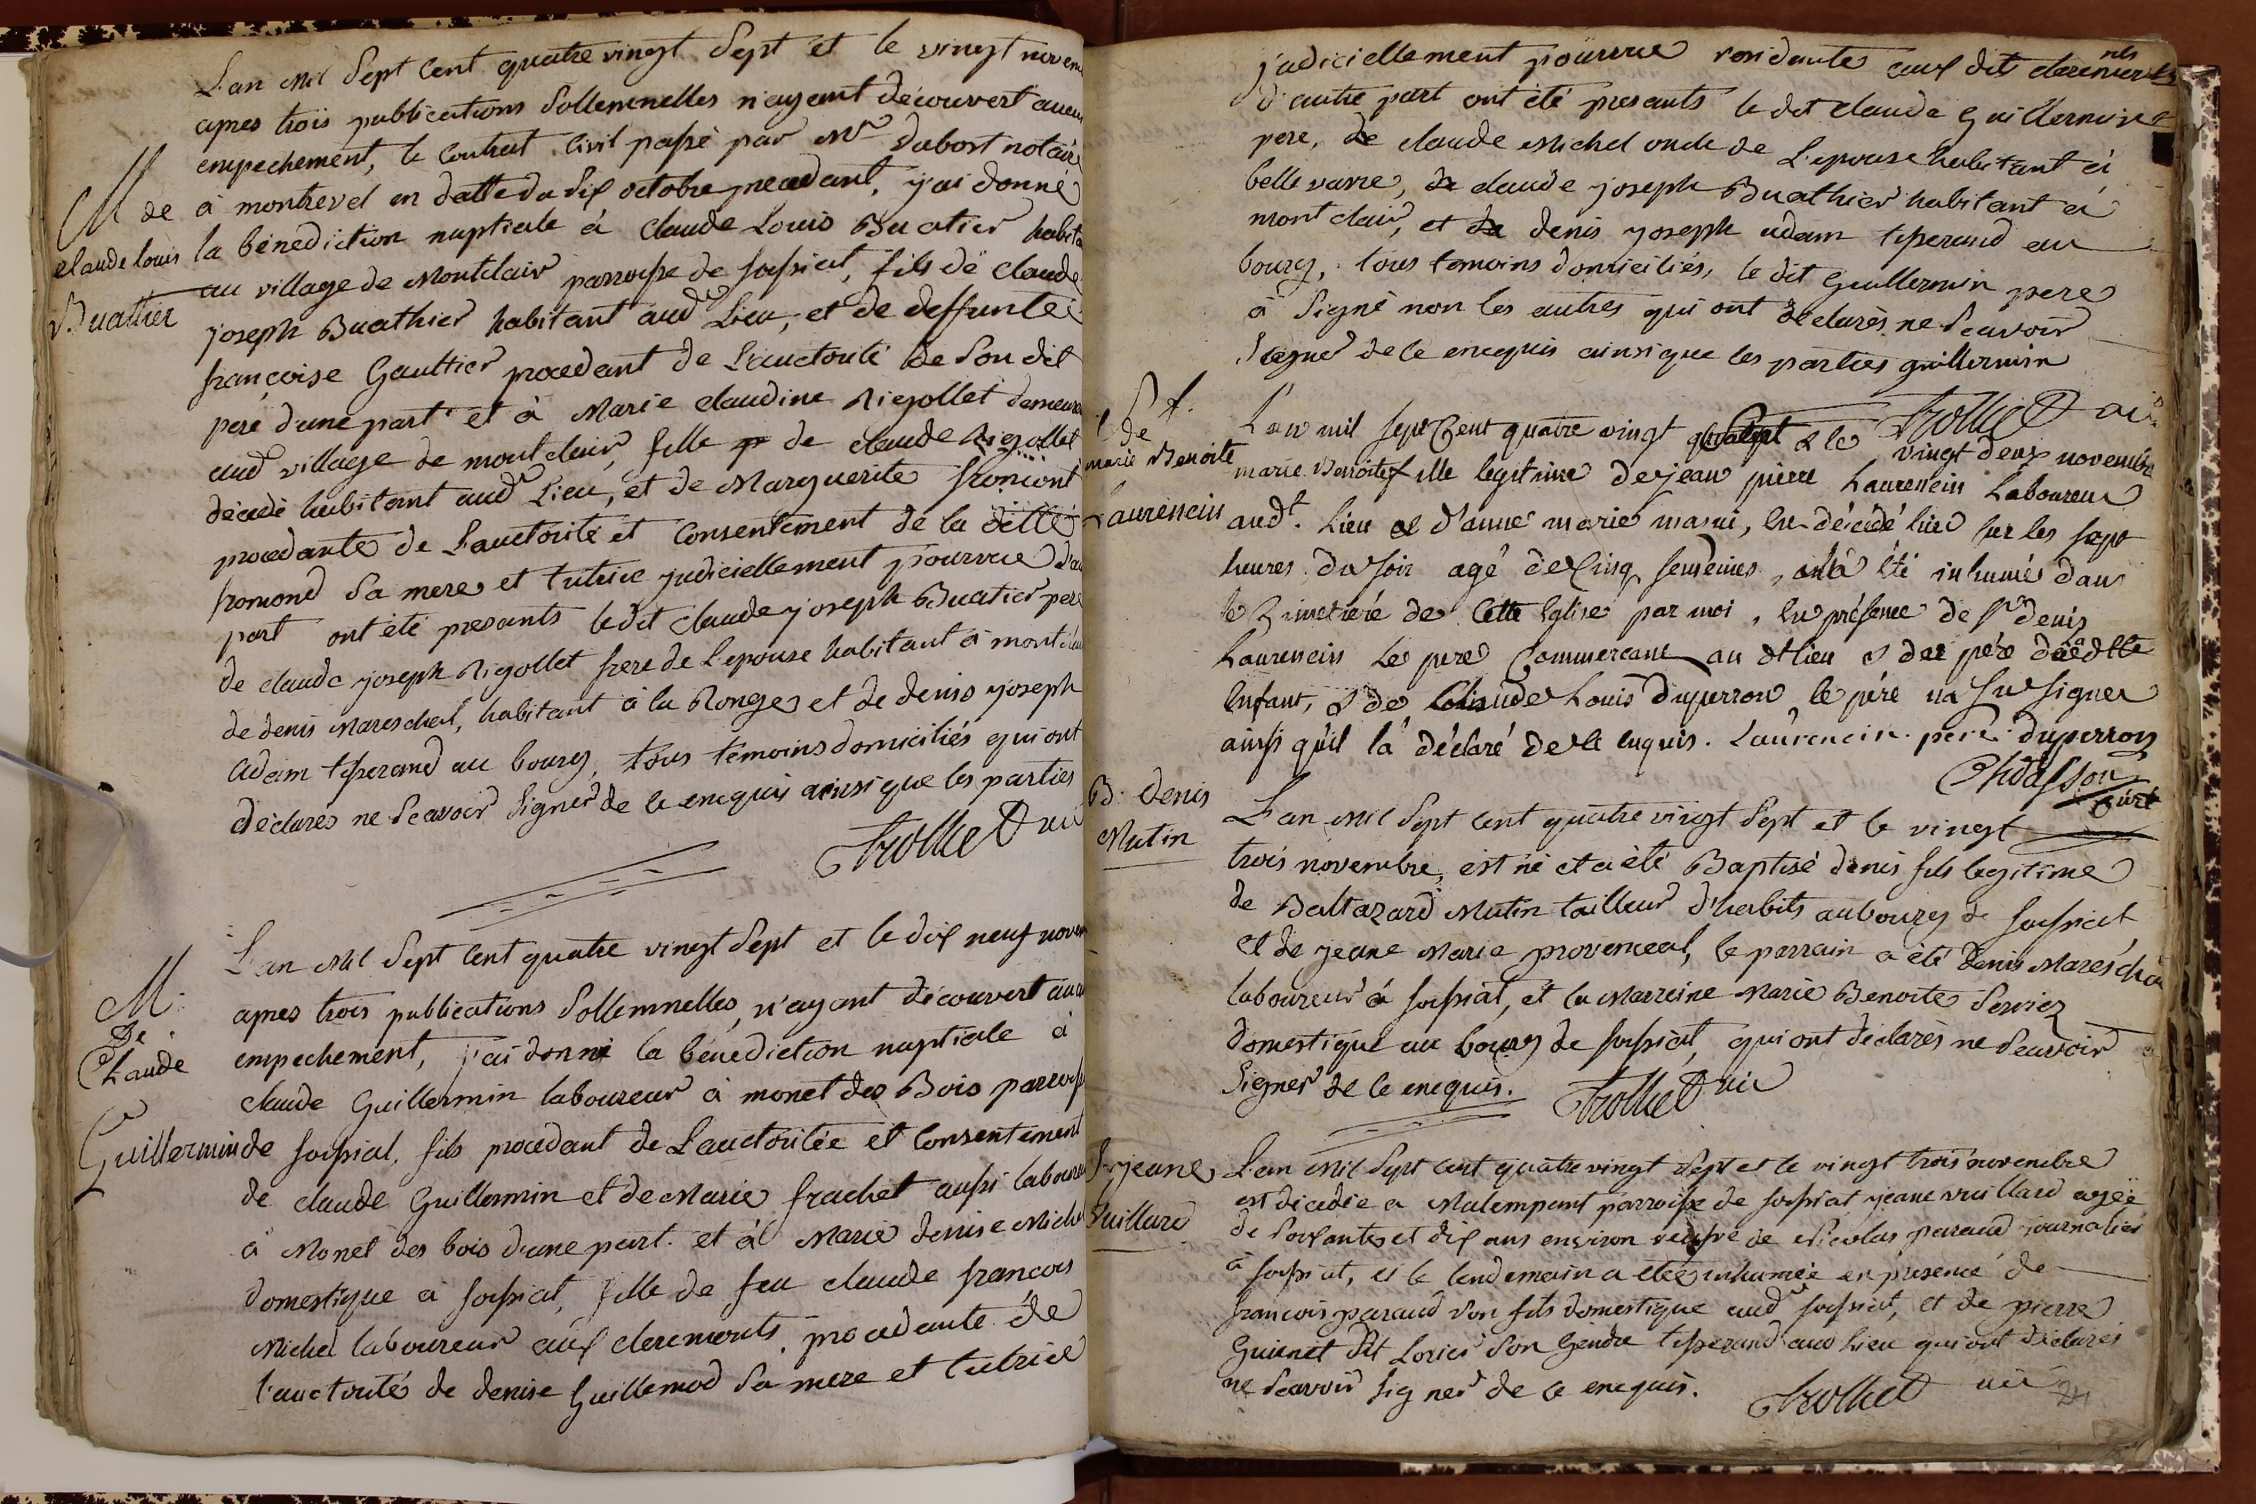 L'an mil Sept Cent quatre vingt Sept et le vingt novem
apres trois publications Sollemnelles n'ayant découvert aucun
empechement, le Contrat Civil passé par Mr Dubost notaire
M de
à montrevel en datte du dix octobre precedant, j'ai donné
claude louis
la bénédiction nuptiale à Claude Louis Buatier habita
au village de Montclair parroisse de foissiat, fils de claude
Buathier
joseph Buathier habitant aud Lieu, et de deffunte
françoise Gaultier procedant de L'auctorité de Son dit
pere d'une part et à Marie claudine Rigollet demeura
aud village de montclair, fille de claude Rigollet
décédé habitant aud Lieu, et de Marguerite fromont
procedante de L'auctorité et Consentement de la ditte
fromond Sa mere et tutrice judiciellement pourvue d'au
part ont été presants le dit claude joseph Buatier pere
de claude joseph Rigollet frere de L'epouse habitant à montclai
de denis Mareschal, habitant à la Ronge et de denis joseph
adam tisserand au bourg, tous témoins domiciliés qui ont
déclarés ne Scavoir Signer de ce enequis ainsi que les parties
Trolliet vic
L'an mil Sept Cent quatre vingt Sept et le dix neuf novem
M.
apres trois publications Sollemnelles, n'ayant découvert aucun
De
Claude
empechement, j'ai donné la bénédiction nuptiale à
claude Guillermin laboureur à monet des Bois parroisse
Guillermin
de foissiat, fils procedant de L'auctoritée et Consentement
de claude Guillermin et de Marie frachet aussi laboureur
à Monet des bois d'une part. et à Marie denise Michel
domestique à foissiat, fille de feu claude françois
Michel laboureur aux cleremonts, procedante de
l'auctorité de denise Guillemod Sa mere et tutrice
judiciellement pourvue residante aux dits cleremonts
d'autre part ont été presants le dit claude Guillermin
pere, de claude Michel oncle de L'epouse habitant à
bellevavre, de claude joseph Buathier habitant à
mont clair, et de denis joseph adam tisserand au
bourg, tous temoins domiciliés, le dit Guillermin pere
à Signé non les autres qui ont déclarés ne Scavoir
Signer de ce enequis ainsi que les parties guillermin
Trolliet vic
de
marie Benoite
Laurencin
L'an mil sept Cent quatre vingt sept & le vingt deux novembre
marie Benoite fille legitime de jean pierre Laurencin Laboureur
audt. Lieu & d'anne marie masui, en décédé hier sur les sept
heures du soir agé de Cinq semeines, a été inhumée dans
le Cimetiere de Cette Eglise par moi, En présence de Sr denis
Laurencin le pere Commercant au dt lieu & du père de la dtte
Enfant, & de Claude Louis duperron le pére na su signer
ainsi qu'il la déclaré de ce enquis. Laurencin pere duperron
Chasson
curé
B. Denis
Mutin
L'an Mil Sept Cent quatre vingt Sept et le vingt
trois novembre, est né et a été Baptisé denis fils legitime
de Baltazard Mutin tailleur d'habits au bourg de foissiat
et de jeane Marie provencal, le parrain a été denis Marescha
laboureur à foissiat, et la Marreine Marie Benoite Serviez
domestique au bourg de foissiat, qui ont déclarés ne Scavoir
Signer de ce enequis. Trolliet vic
jeane
Vuillard
L'an Mil Sept cent quatre vingt Sept et le vingt trois novembre
est décédée a Malempant parroisse de foissiat jeane vuillard agée
de Soixante et dix ans environ veufve de Nicolas paraud journalier
à foissiat, et le lendemain a etée inhumée en presence de
françois paraud Son fils domestique aud foissiat, et de pierre
Guienet dit Loriei Son Gendre tisserand aud Lieu qui ont déclarés
ne Scavoir Signer de ce enequis. Trolliet vic